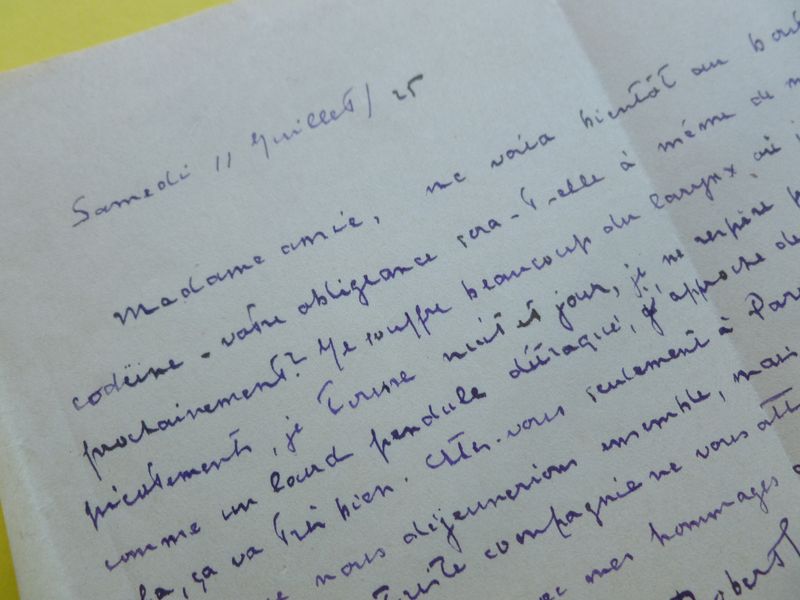 Samedi 11 Juillet / 25
Madame amie, me voici bientôt au bout
codéine - votre obligeance sera-t-elle à même de m
prochainement? Je souffre beaucoup du larynx, où j
picotements, je tousse nuit et jour, je ne respire p
comme un lourd pendule détraqué, j'approche de
la, ça va très bien. Etes-vous seulement à Par
nous déjeunerions ensemble, mais
triste compagnie ne vous att
ec mes hommages
Robert